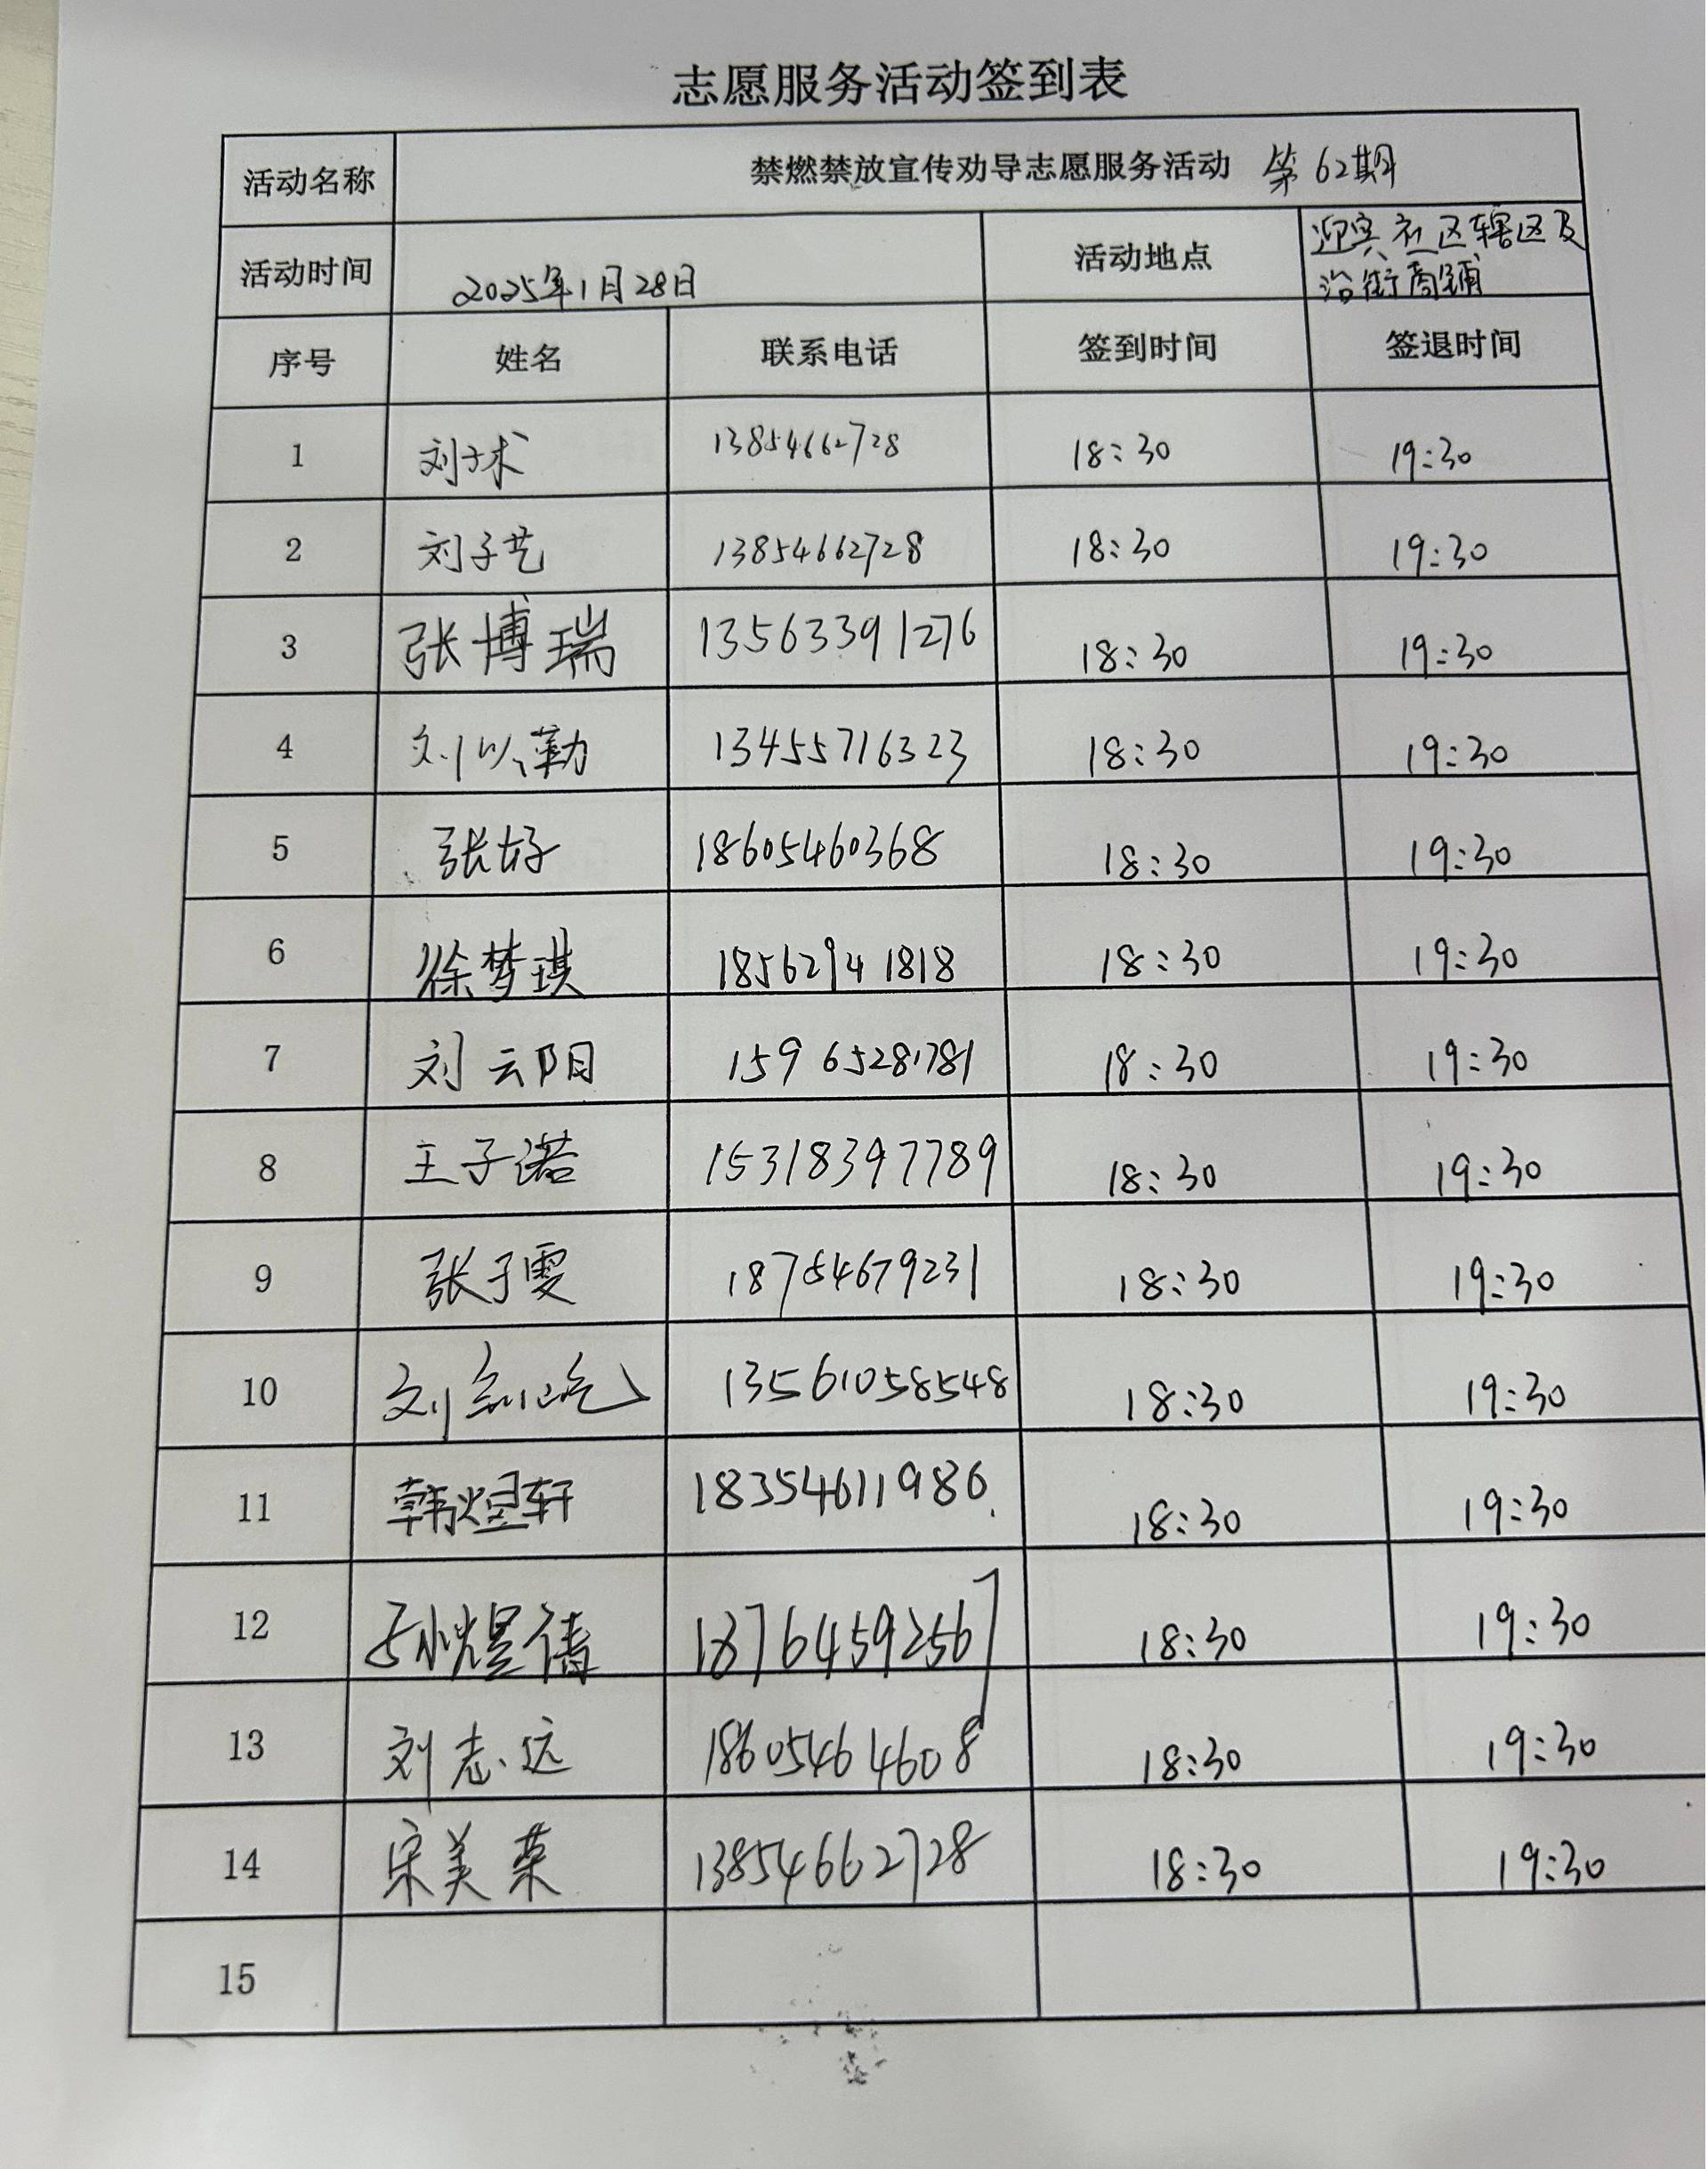 志愿服务活动签到表
活动名称 禁燃禁放宣传劝导志愿服务活动 第62期
活动时间 2025年1月28日 活动地点 迎宾社区辖区及
沿街商铺
序号 姓名 联系电话 签到时间 签退时间
1 刘子术 13854662728 18:30 19:30
2 刘子艺 13854662728 18:30 19:30
3 张博瑞 13563391276 18:30 19:30
4 刘以勤 13455716323 18:30 19:30
5 张好 18605460368 18:30 19:30
6 徐梦琪 18562941818 18:30 19:30
7 刘云阳 15965281781 18:30 19:30
8 王子诺 15318397789 18:30 19:30
9 张子雯 18754679231 18:30 19:30
10 刘 13561058548 18:30 19:30
11 韩煜轩 18354611986 18:30 19:30
12 18764592567 18:30 19:30
13 刘志远 18605464608 18:30 19:30
14 宋美荣 13854662728 18:30 19:30
15